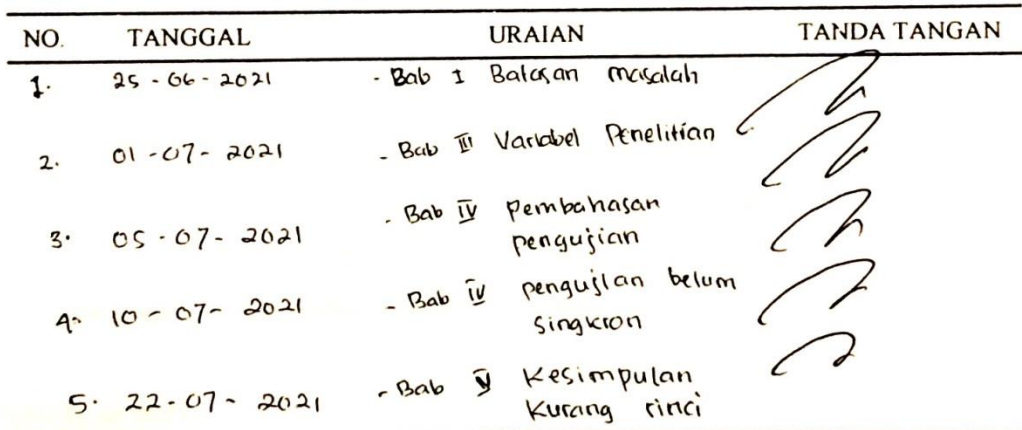 NO. TANGGAL URAIAN TANDA TANGAN
1. 25 - 06 - 2021 - Bab I Batasan masalah
2. 01 - 07 - 2021 - Bab III Variabel Penelitian
3. 05 - 07 - 2021 - Bab IV Pembahasan
pengujian
4. 10 - 07 - 2021 - Bab IV pengujian belum
singkron
5. 22 - 07 - 2021 - Bab V Kesimpulan
Kurang rinci